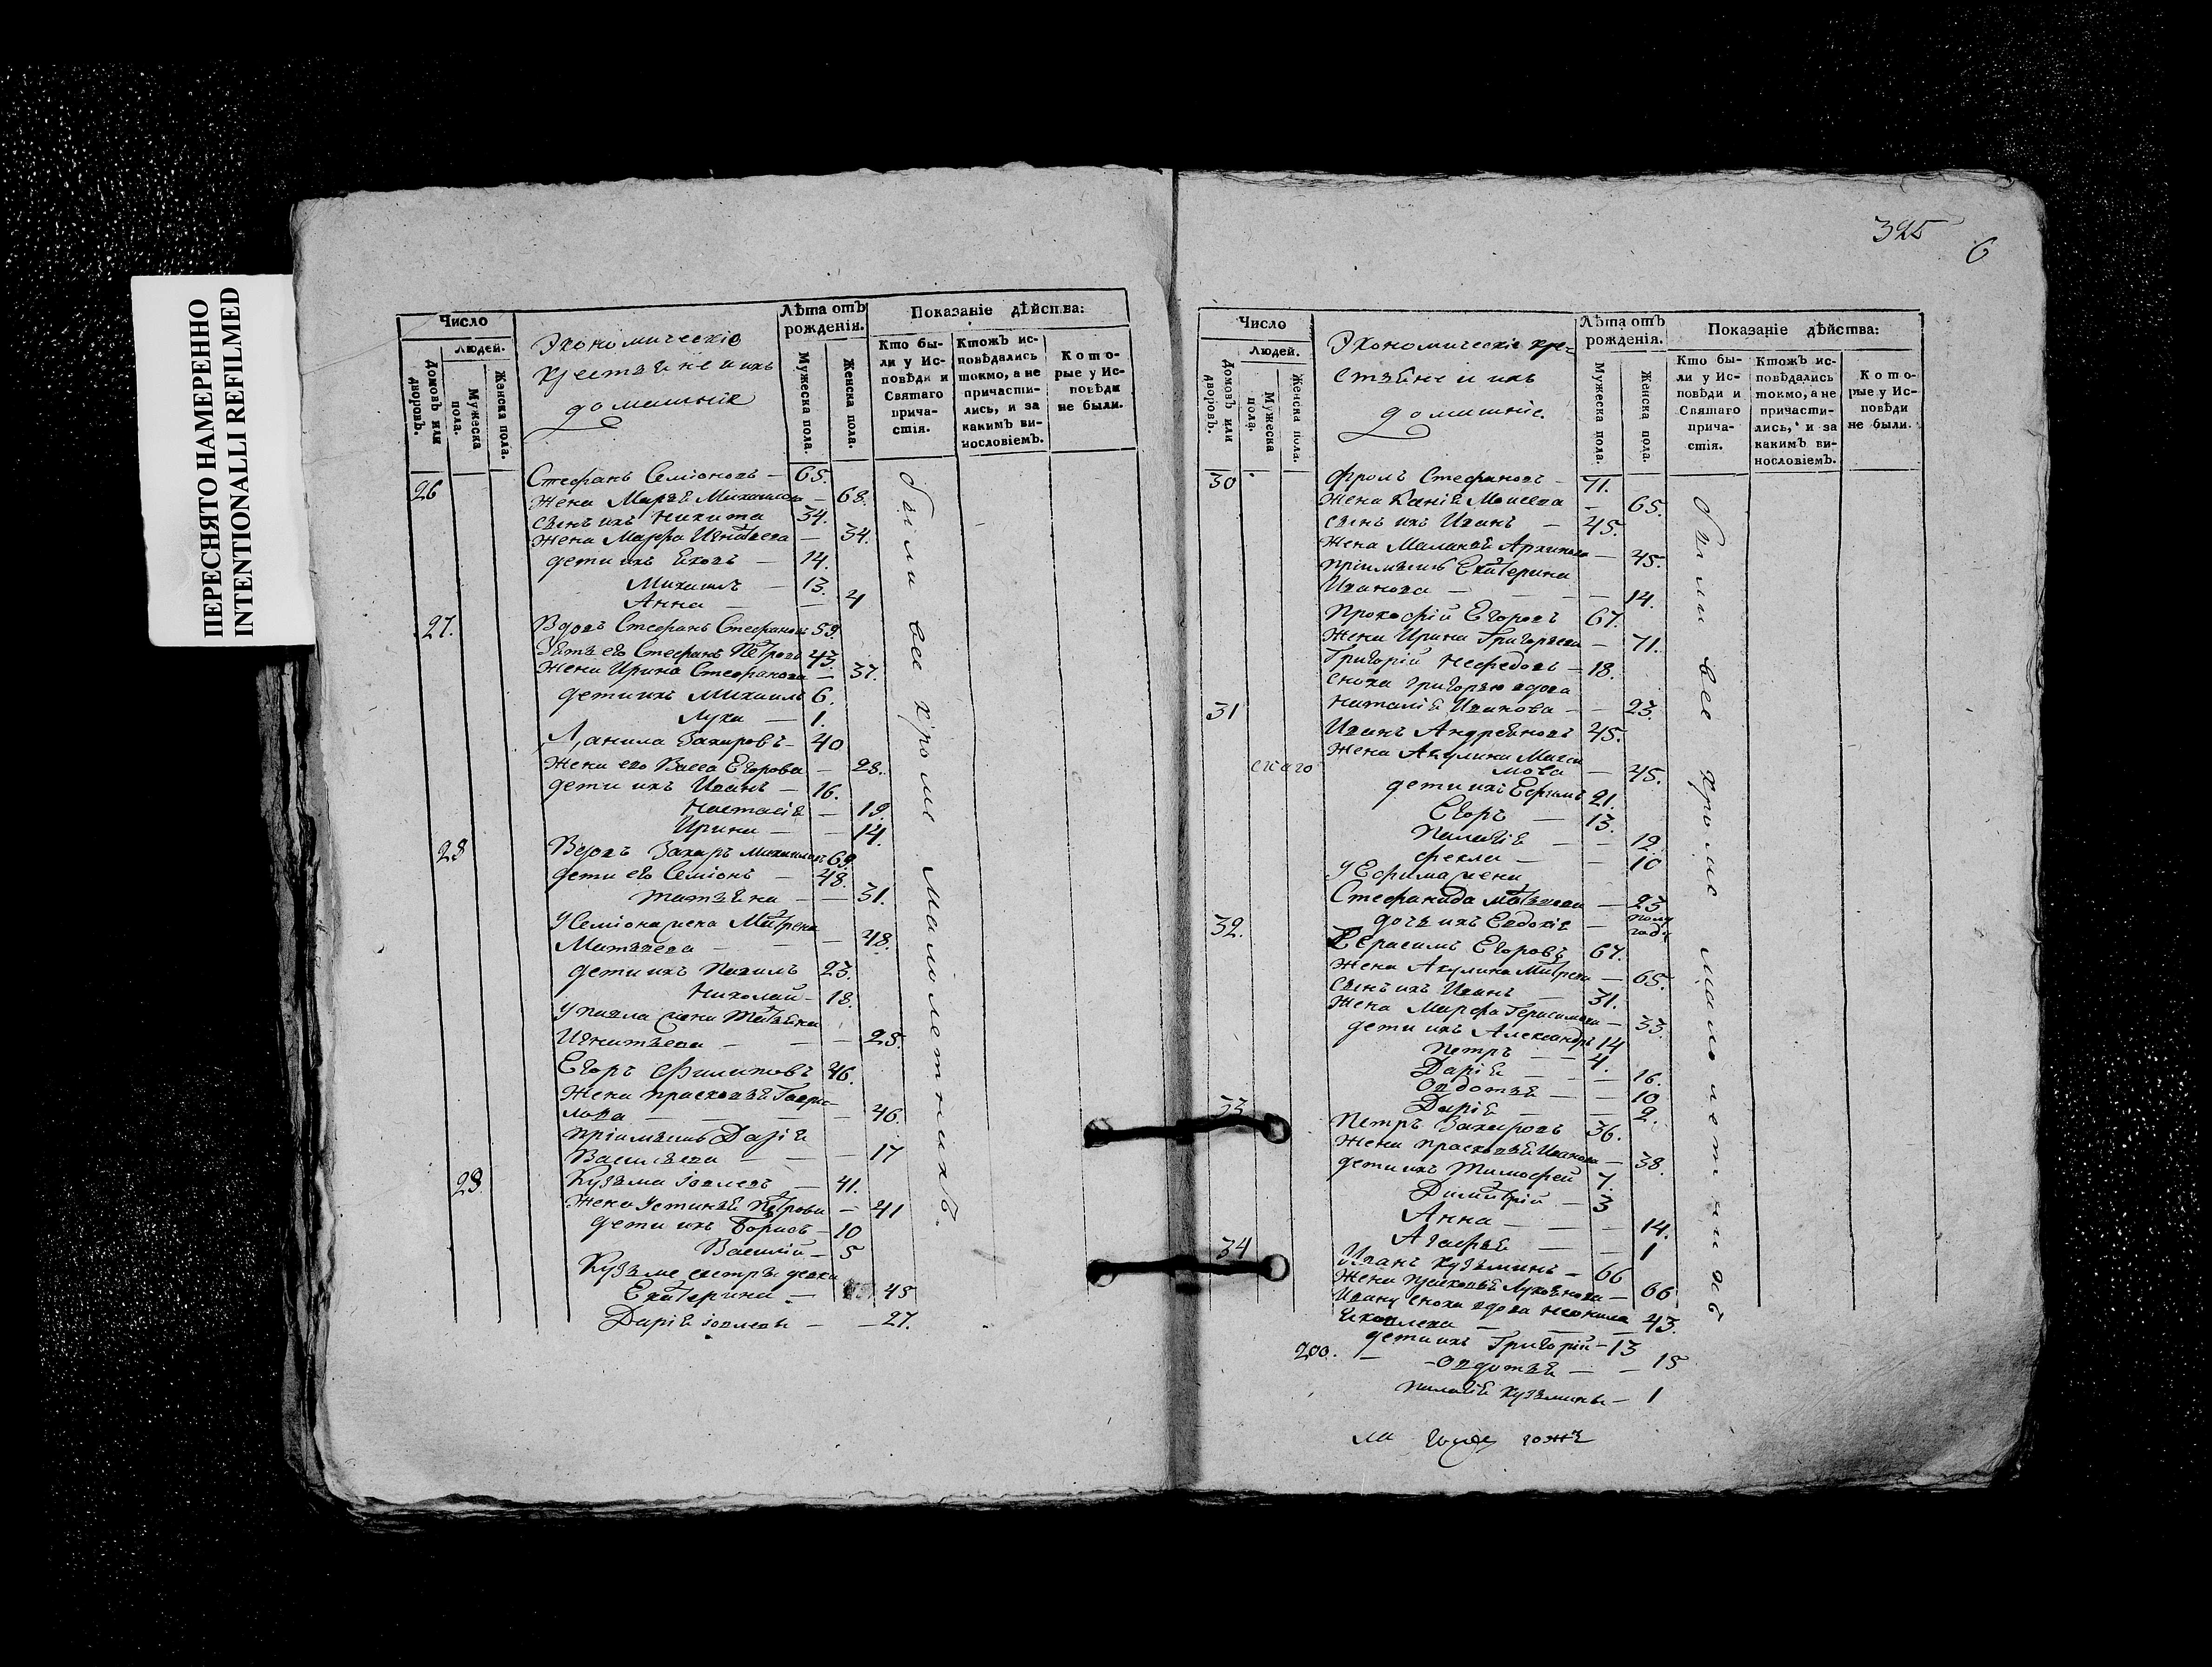 ПЕРЕСНЯТО НАМЕРЕННО
INTENTIONALLI REFILMED
Число
Людей.
Домовъ или дворовъ.
Мужеска пола.
Женска пола.
Экономическіе
крестьяне и ихъ
домашніе
Лѣта отъ рожденія.
Мужеска пола.
Женска пола.
Показаніе дѣйства:
Кто были у Исповѣди и Святаго причастія.
Ктожъ исповѣдались токмо, а не причастились, и за какимъ винословіемъ.
Которые у Исповѣди не были.
26 Стефанъ Семіоновъ – 65.
Жена Марѳа Михаилова – 68.
сынъ ихъ Никита 34.
Жена Марфа Игнатьева – 34.
дети ихъ Яковъ – 14.
Михаилъ – 13.
Анна – – 4
27. Вдовъ Стефанъ Стефановъ 59.
Зять его Стефанъ Петровъ 43.
Жена Ирина Стефанова – 37.
дети ихъ Михаилъ 6.
Лука – 1.
Данила Захаровъ – 40
Жена его Васса Егорова – 28.
дети ихъ Иванъ – 16.
Настасія – 19.
Ирина – – 14.
28 Вдовъ Захаръ Михаиловъ 69.
дети его Семіонъ – 48.
Татьяна – – 31.
У Семіона жена Матрена
Матвеева – – – 48.
дети ихъ Павелъ 23.
Николай – 18.
У Павла жена Татьяна
Игнатьева – – – 25.
Егоръ Филиповъ 46.
Жена Прасковья Гаври-
лова – – – 46.
пріимышъ Дарія
Васильева – – – 17
29. Кузьма Іовлевъ – 41.
Жена Устинья Петрова – 41
дети ихъ Борисъ – 10
Василій – 5
Кузьме сестры девки
Екатерина – 45
Дарія Іовлевы – – 27.
были все кроме малолетнихъ.
325
6
Число
Людей.
Домовъ или дворовъ.
Мужеска пола.
Женска пола.
Экономическіе кре-
стьяне и ихъ
домашніе
Лѣта отъ рожденія.
Мужеска пола.
Женска пола.
Показаніе дѣйства:
Кто были у Исповѣди и Святаго причастія.
Ктожъ исповѣдались токмо, а не причастились, и за какимъ винословіемъ.
Которые у Исповѣди не были.
30 Фролъ Стефановъ – 71.
Жена Моисеева – 65.
сынъ ихъ Иванъ – 45.
Жена Маланья Архипова – 45.
пріимышъ Екатерина
Иванова – – – 14.
Прокофій Егоровъ 67.
Жена Ирина Григорьева – 71.
Григорій Нефедовъ – 18.
сноха Григорью вдова
31 Наталія Иванова – – 23.
Иванъ Андреяновъ 45.
Жена Акулина Макси
скаго мова – 45.
дети ихъ Ефимъ 21.
Егоръ – 13.
Палагія – – 12
Фекла – – 10
У Ефима жена
Стефанида Матвеева – 23
дочь ихъ Евдокія – пол года
32. Герасимъ Егоровъ 67.
Жена Акулина – 65.
сынъ ихъ Иванъ – 31.
Жена Марфа Герасимова – 33.
дети ихъ Александръ 14
Петръ – – 4.
Дарія – – – 16.
Овдотья – – 10
Дарія – – 2.
33 Петръ Захаровъ 36.
Жена Прасковья Иванова – 38.
дети ихъ Тимофей 7
Димитрій – 3
Анна – – – 14.
Агафья – – 1
34 Иванъ Кузьминъ – 66
Жена Прасковья Лукьянова – 66
Ивану сноха вдова Неонила
Яковлева – – – 43.
дети ихъ Григорій – 13
200. – – Овдотья – – 15
Палагія Кузьмины – 1
были все кроме малолетнихъ